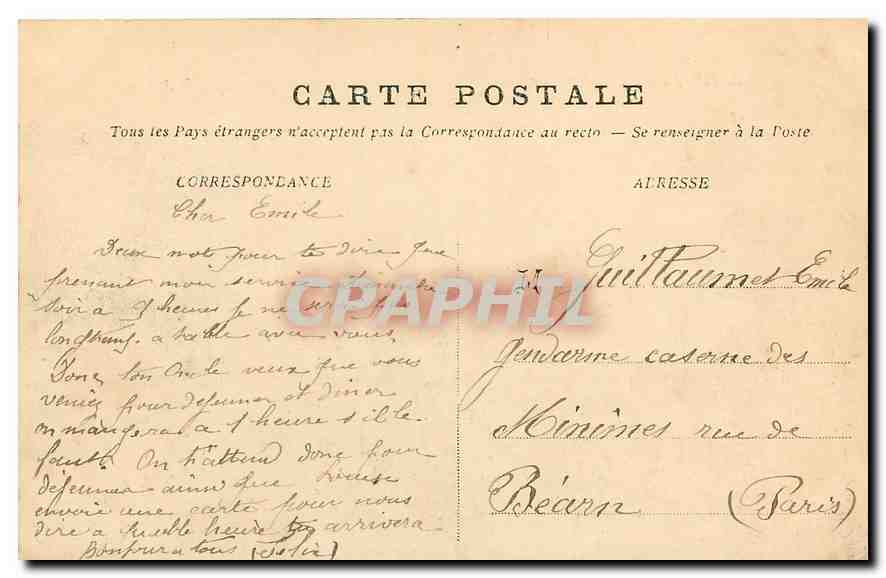 CARTE POSTALE
Tous les Pays étrangers n'acceptent pas la Correspondance au recto — Se renseigner à la Poste
CORRESPONDANCE
ADRESSE
Cher Emile
Deux mot pour te dire que
prenant moi service dimanche
soir a 9 heures je ne serai pas
longtemps a table avec vous
Donc ton Oncle veux que vous
veniez pour dejeuner et diner
on mangera a 1 heure s'il le
faut. On t'attend donc pour
déjeuner ainsi que Louise
envoie une carte pour nous
dire a quelle heure tu arrivera
Bonjour a tous (Felix)
M Guillaumet Emile
Gendarme caserne des
Minimes rue de
Béarn (Paris)
CPAPHIL